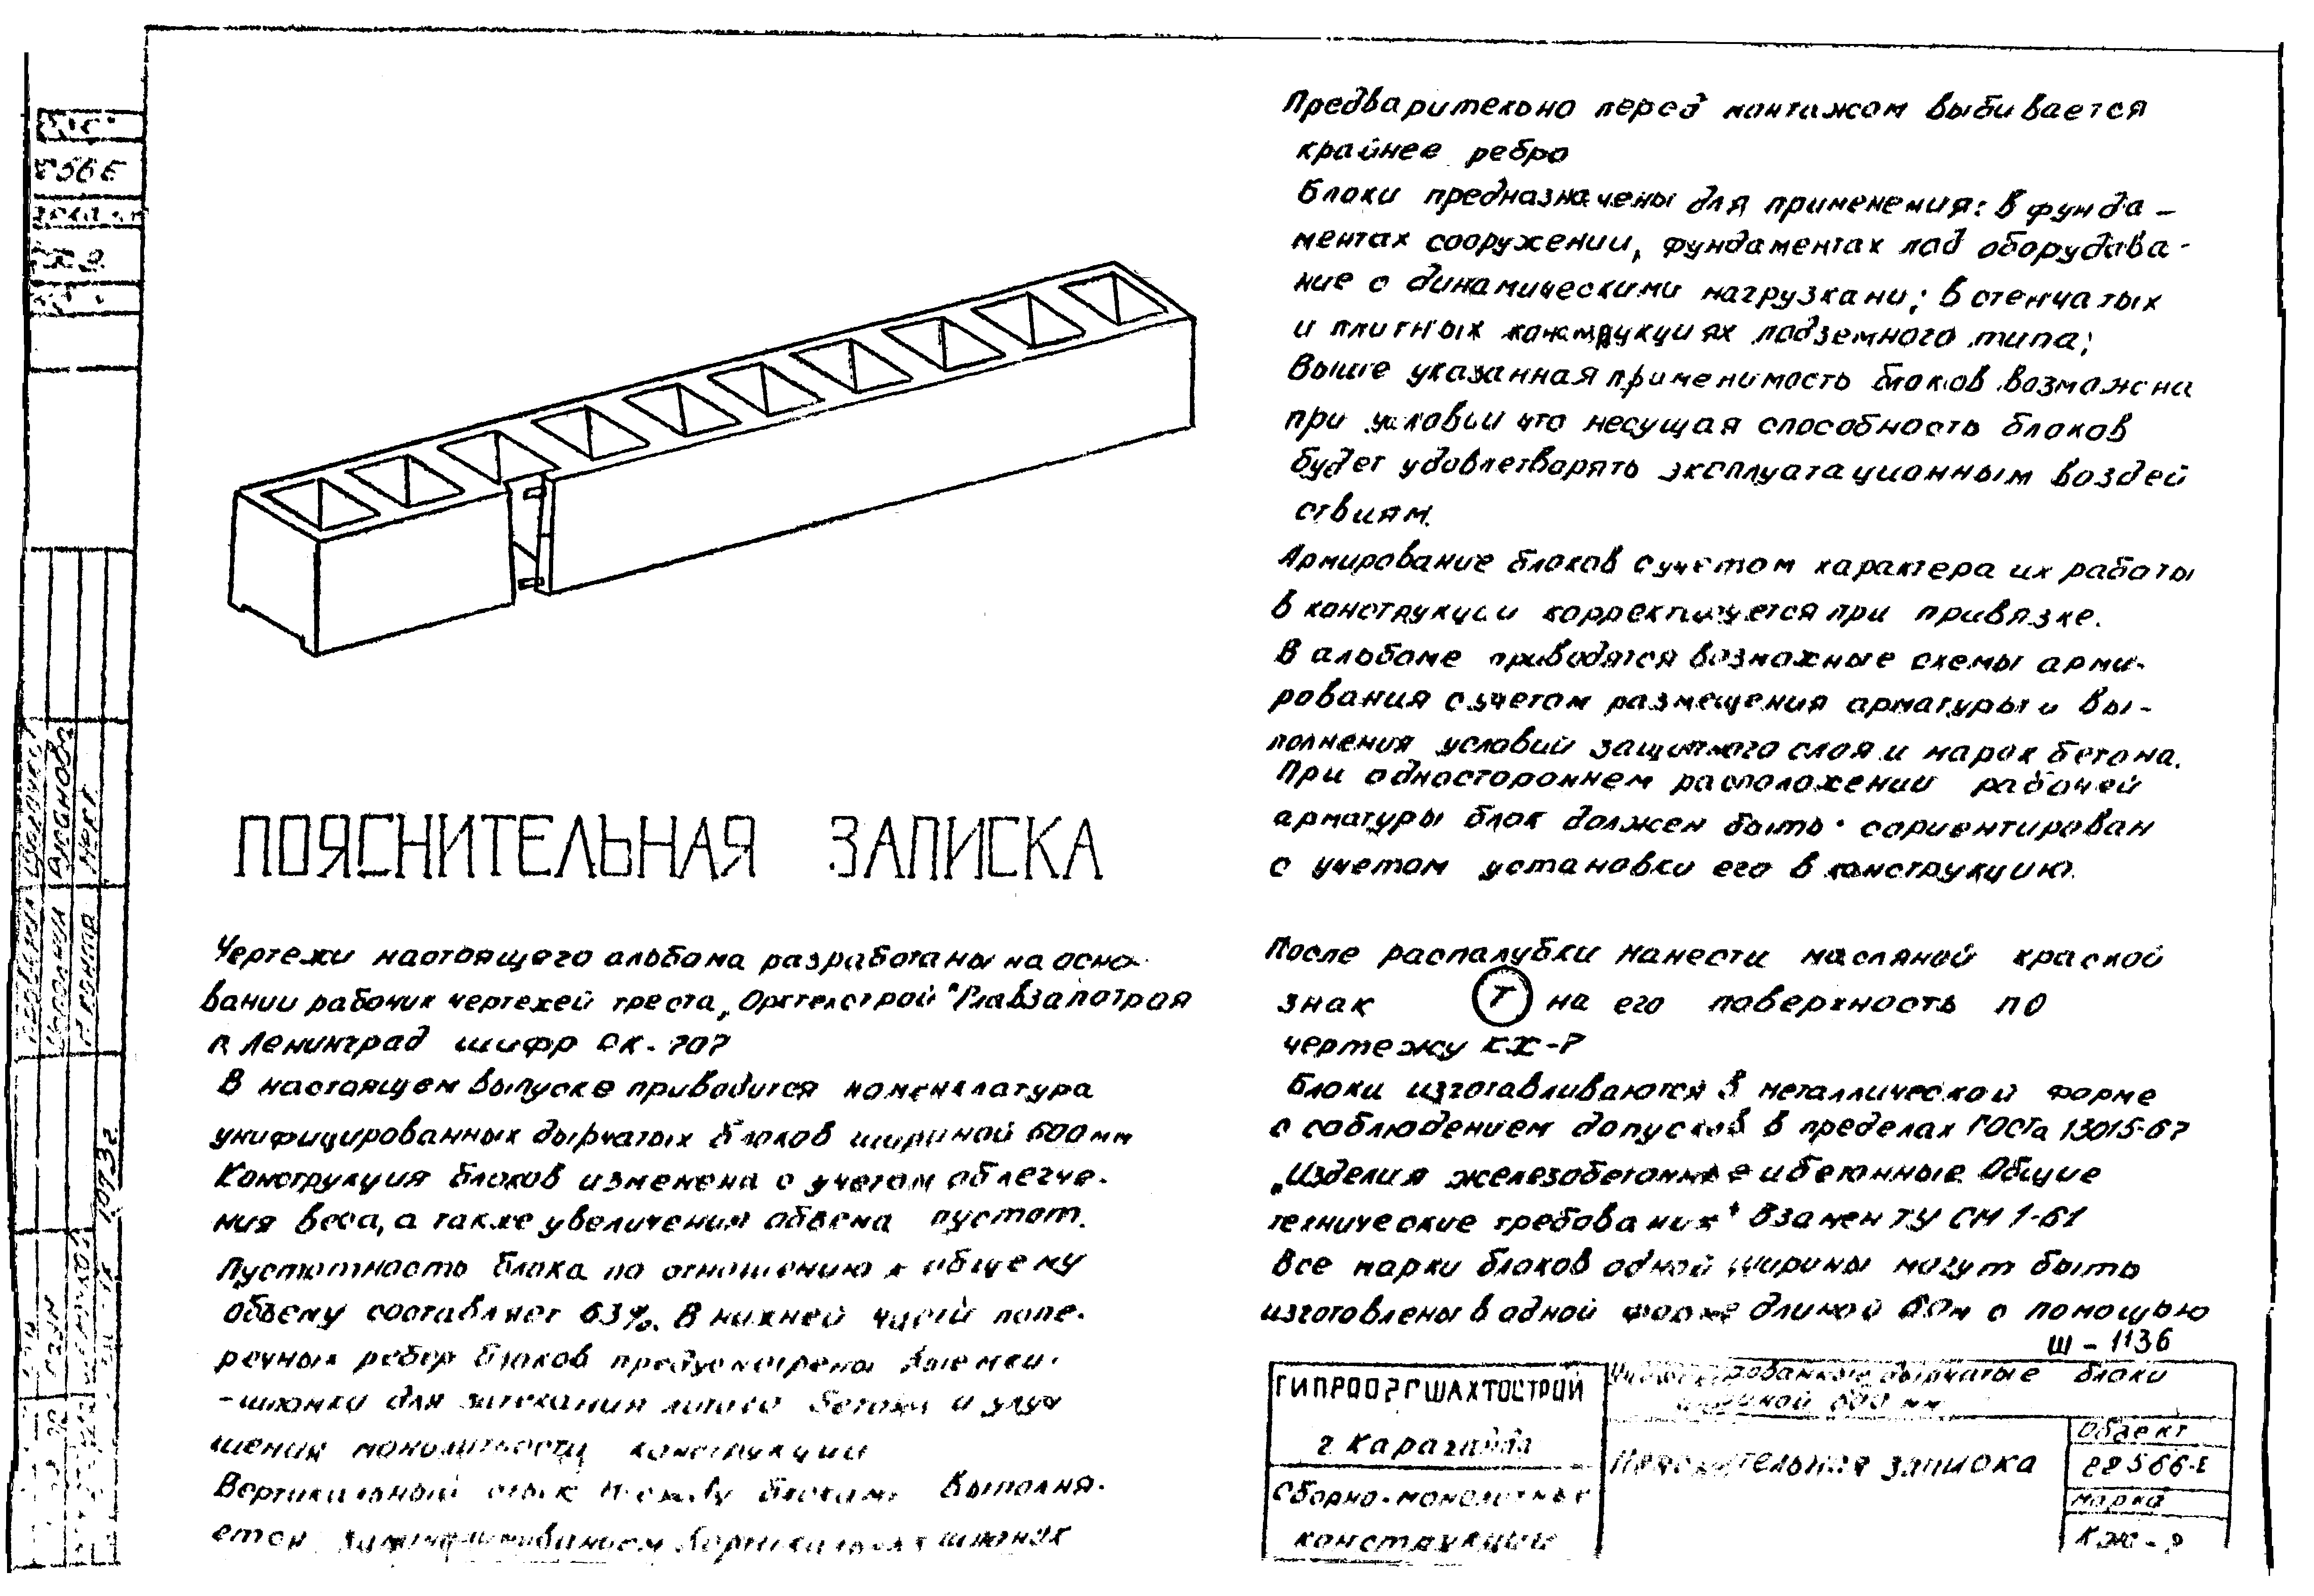 ПОЯСНИТЕЛЬНАЯ ЗАПИСКА
Чертежи настоящего альбома разработаны на осно-
вании рабочих чертежей треста „Оргтехстрой" Главзапстрая
г. Ленинград шифр ОК-707
В настоящем выпуске приводится номенклатура
унифицированных дырчатых блоков шириной 600мм
Конструкция блоков изменена с учетом облегче-
ния веса, а также увеличения объема пустот.
Пустотность блока по отношению к общему
объему составляет 63%. В нижней части попе-
речных ребер блоков предусмотрены выемки-
-шпонки для затекания литого бетона и улуч
шения монолитности конструкции
Вертикальный стык между блоками выполня-
ется замоноличиванием вертикальных шпонок
Предварительно перед монтажом выбивается
крайнее ребро
Блоки предназначены для применения: в фунда-
ментах сооружении, фундаментах под оборудова-
ние с динамическими нагрузками; в стенчатых
и плитных конструкциях подземного типа;
Выше указанная применимость блоков возможна
при условии что несущая способность блоков
будет удовлетворять эксплуатационным воздей
ствиям.
Армирование блоков с учетом характера их работы
в конструкции корректируется при привязке.
В альбоме приводятся возможные схемы арми-
рования с учетом размещения арматуры и вы-
полнения условий защитного слоя и марок бетона.
При одностороннем расположении рабочей
арматуры блок должен быть сориентирован
с учетом установки его в конструкцию.
После распалубки нанести масляной краской
знак Т на его поверхность по
чертежу КЖ-7
Блоки изготавливаются в металлической форме
с соблюдением допусков в пределах ГОСТа 13015-67
„Изделия железобетонные и бетонные Общие
технические требования" Взамен ТУ СМ 1-61
Все марки блоков одной ширины могут быть
изготовлены в одной форме длиной 6.0м с помощью
Ш-1136
ГИПРООРГШАХТОСТРОЙ
г. Караганда
Сборно-монолитные
конструкции
Унифицированные дырчатые блоки
шириной 600 мм
Пояснительная записка
Объект
22566-Е
марка
КЖ-2
1973г